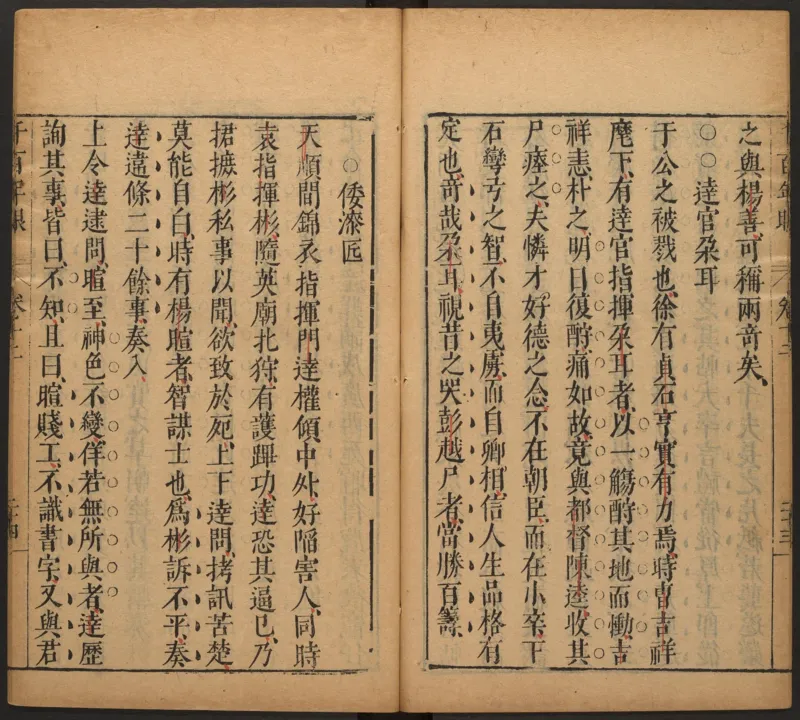 之與楊善可稱兩奇矣
○○達官朶耳
于公之被戮也徐有貞石亨實有力焉時曹吉祥
麾下有達官指揮朶耳者以一觴酹其地而慟吉
祥恚朴之明日復酹痛如故竟與都督陳逵收其
尸瘞之夫憐才好德之念不在朝臣而在小卒下
石彎弓之智不自夷虜而自卿相信人生品格有
定也奇哉朶耳視昔之哭彭越尸者當勝百籌
○倭漆匠
天順間錦衣指揮門達權傾中外好陷害人同時
袁指揮彬隨英廟北狩有護蹕功達恐其逼已乃
捃摭彬私事以聞欲致於死上下達問拷訊苦楚
莫能自白時有楊暄者智謀士也爲彬訴不平奏
達違條二十餘事奏入
上令達逮問暄至神色不變佯若無所與者達歷
詢其事皆曰不知且曰暄賤工不識書字又與君